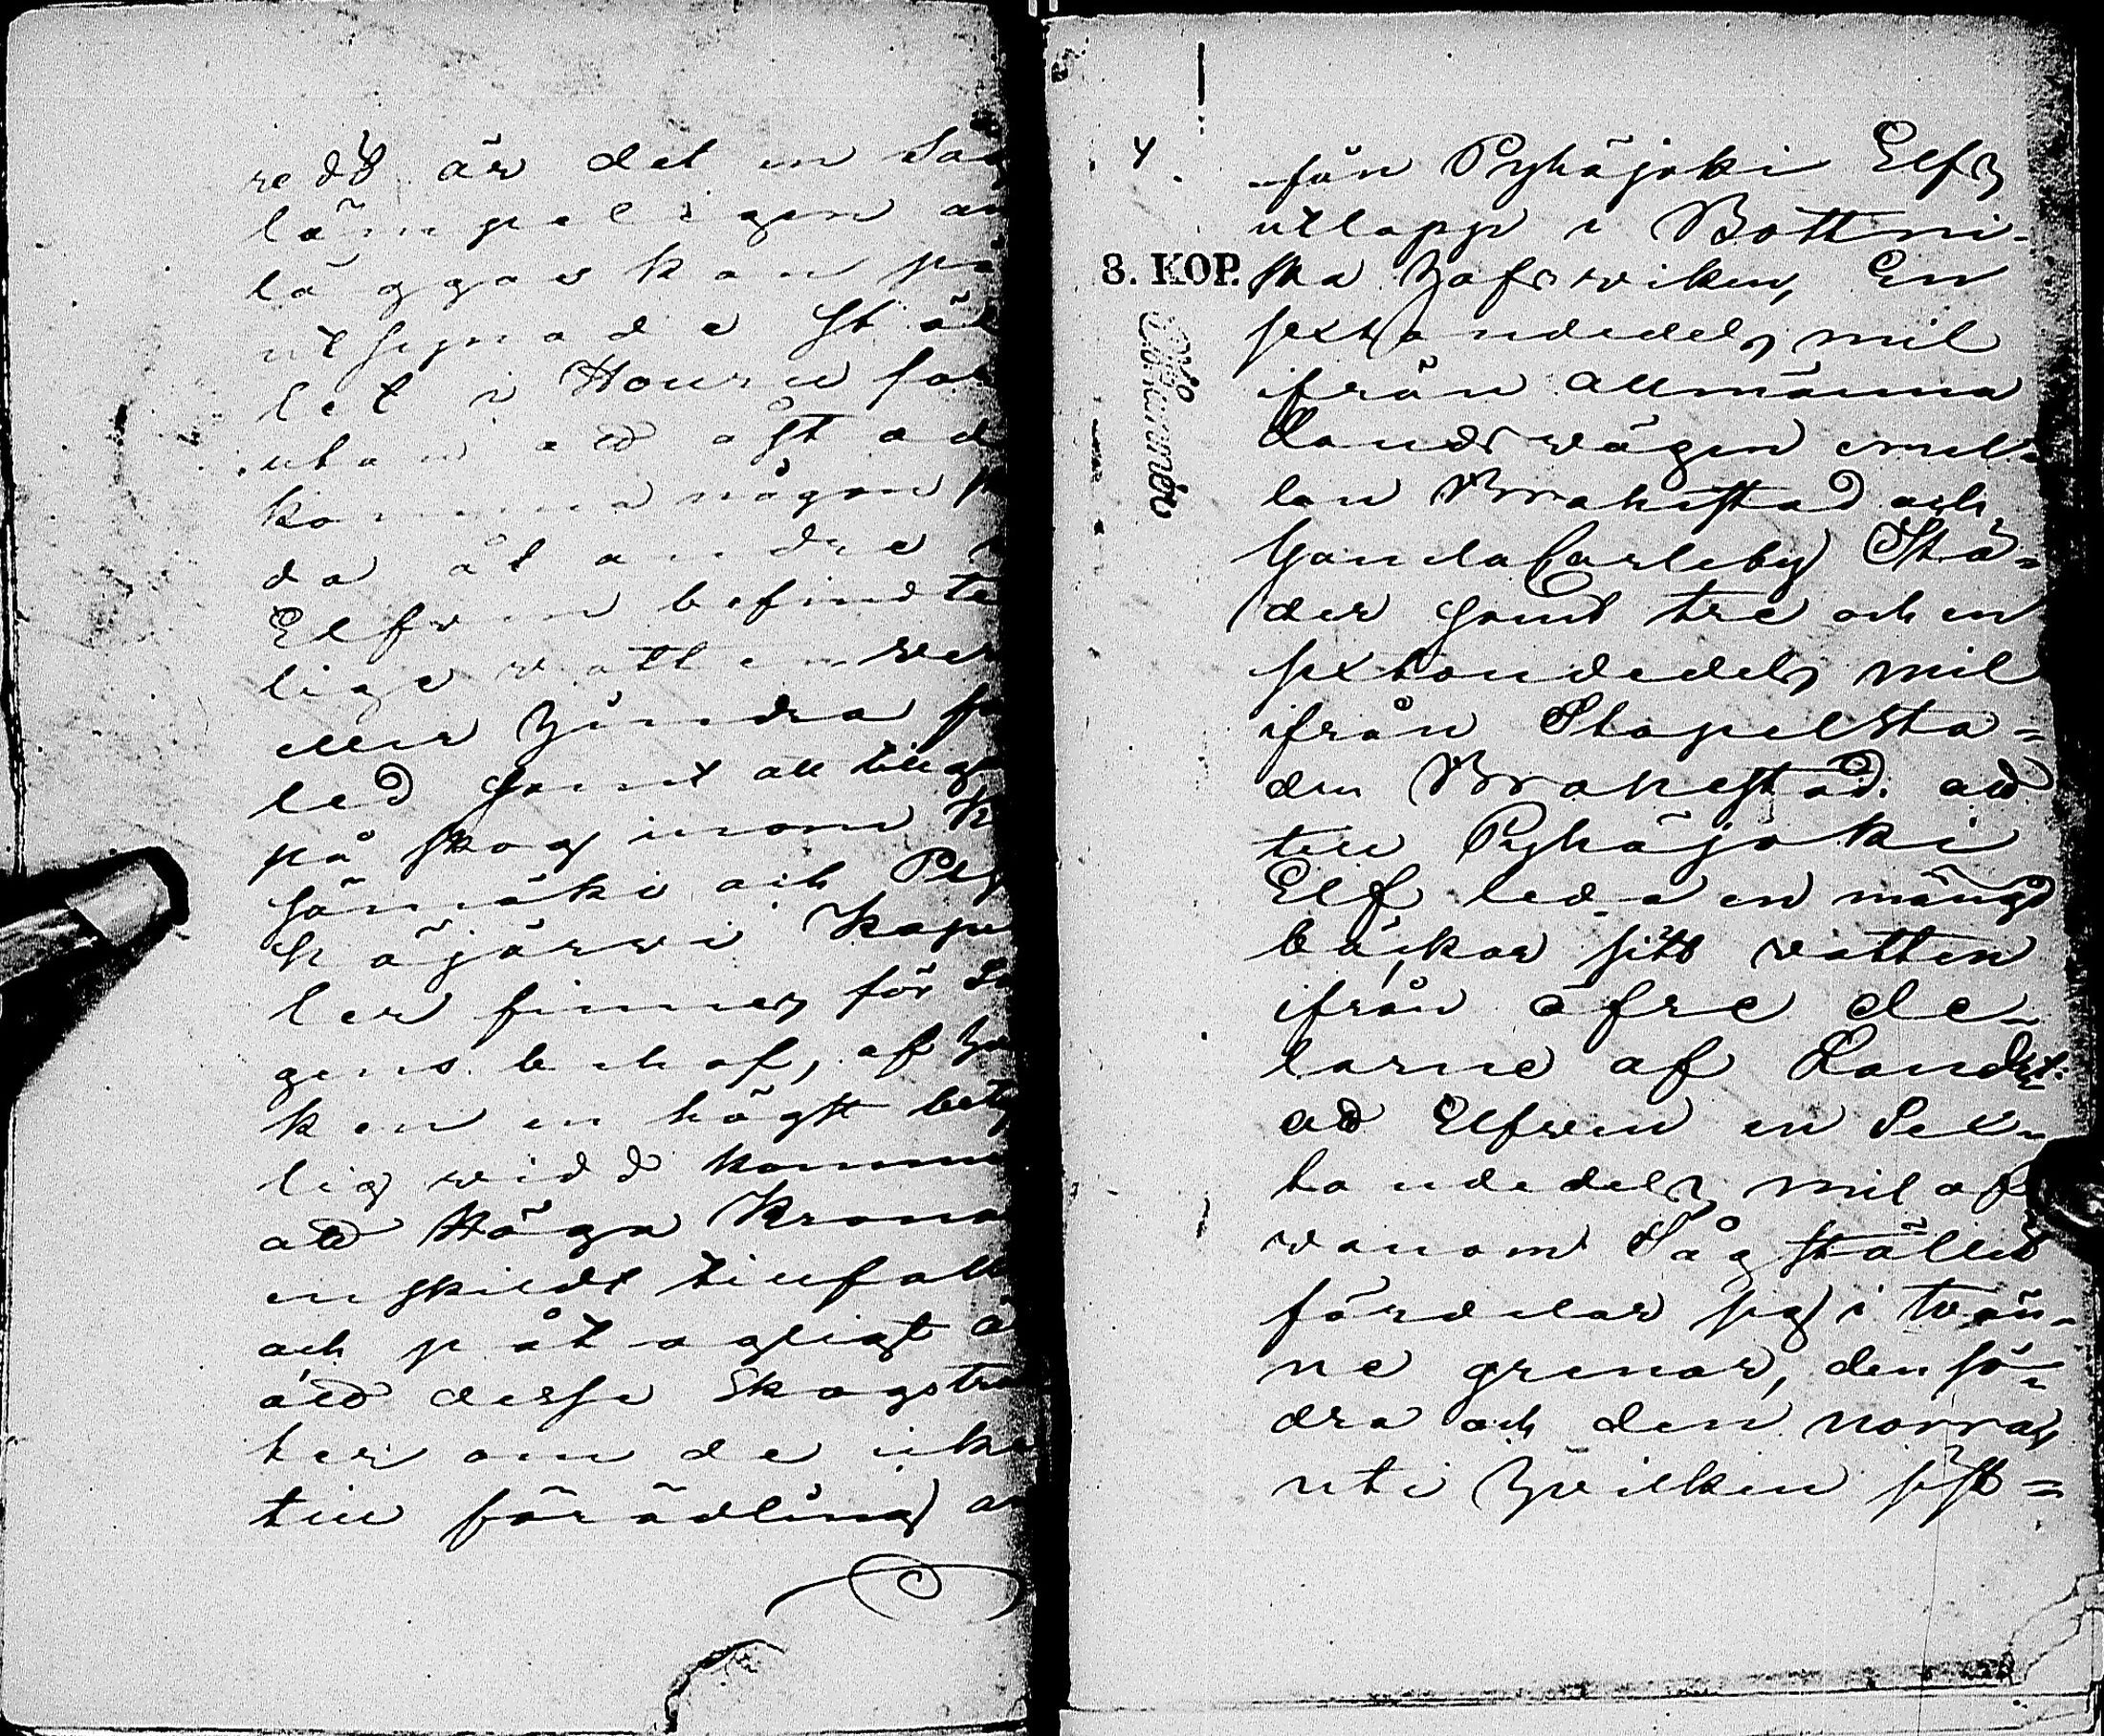 redt är det en Såg
lämpeligen an
läggas kan på
utsynade stäl
let i Houru fors
utan att åstad
komma någon
da åt andre
Elfven befindte
lige vattenver
eller hindra
led samt all tillg
på skog inom
sämäki och Py
häjärvi Kapel
ler finnes för Så
gens behof, af hvil
ken en högst bety
lig vidd komme
att Höga Kronan
enskildt tillfalla
och påtagligt är
att desse Skogstra
ter om de icke
till förädling an
4.
från Pyhäjoki Elfs
utlopp i Bottni-
8. KOP. ska hafsviken, En
sextondedels mil
ifrån allmänna
Landsvägen emel-
lan Brahestad och
GamlaCarleby Stä-
der samt tre och en
sextondedels mil
ifrån Stapelsta-
den Brahestad. att
till Pyhäjoki
Elf leda en mängd
bäckar sitt vatten
ifrån öfre de-
larne af Landet:
att Elfven en Sex-
tondedels mil of
vanom Sågstället
fördelar sig i tvän-
ne grenar, den sö-
dra och den norra,
uti hvilken sist=